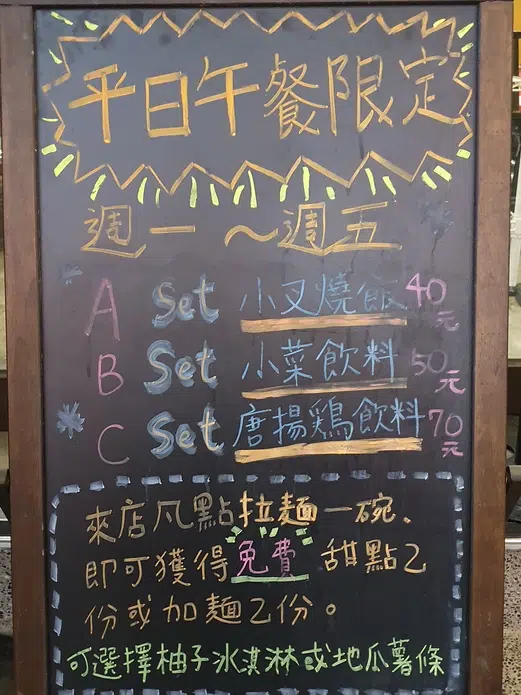 平日午餐限定
週一～週五
A Set 小叉燒飯 40元
B Set 小菜飲料 50元
C Set 唐揚鶏飲料 70元
來店凡點拉麵一碗、
即可獲得免費 甜點乙
份或加麵乙份。
可選擇柚子冰淇淋或地瓜薯條